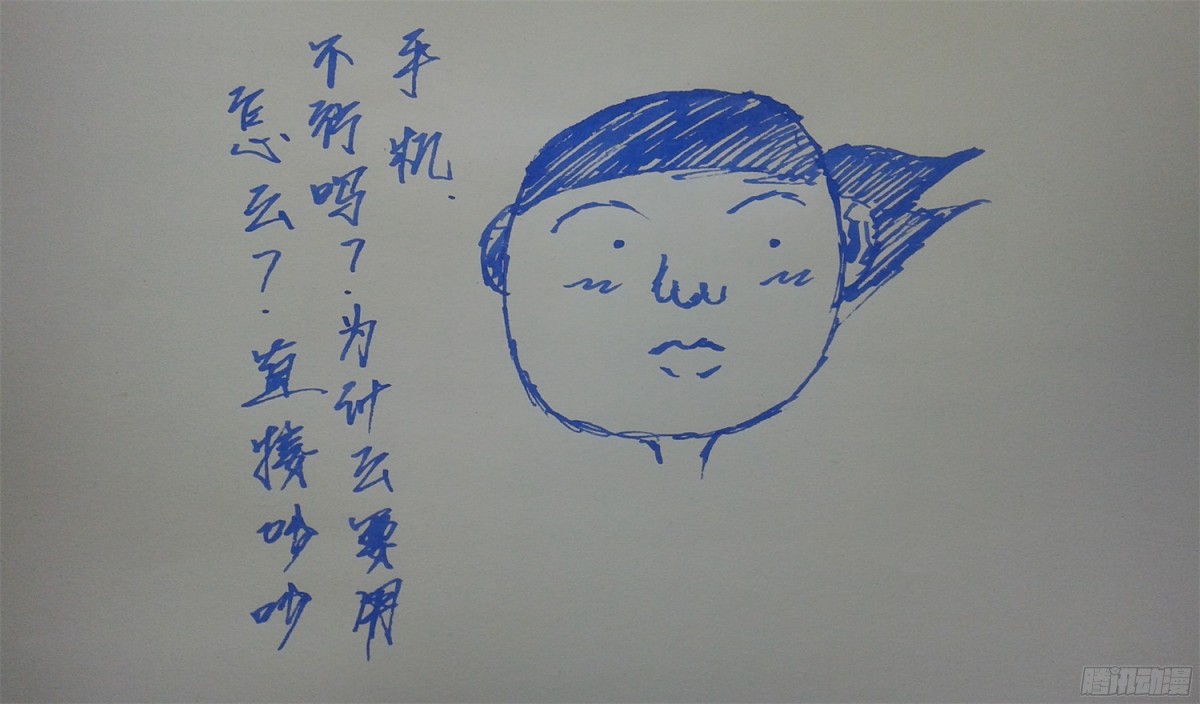 怎么？直接吵吵
不行吗？为什么要用
手机.
腾讯动漫